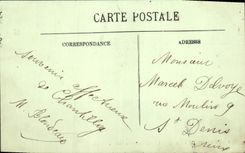 CARTE POSTALE
CORRESPONDANCE
ADRESSE
Souvenir
affectueux
de Chantilly
M
Monsieur
Marcel Delvoye
rue Moulins 9
St Denis
Seine